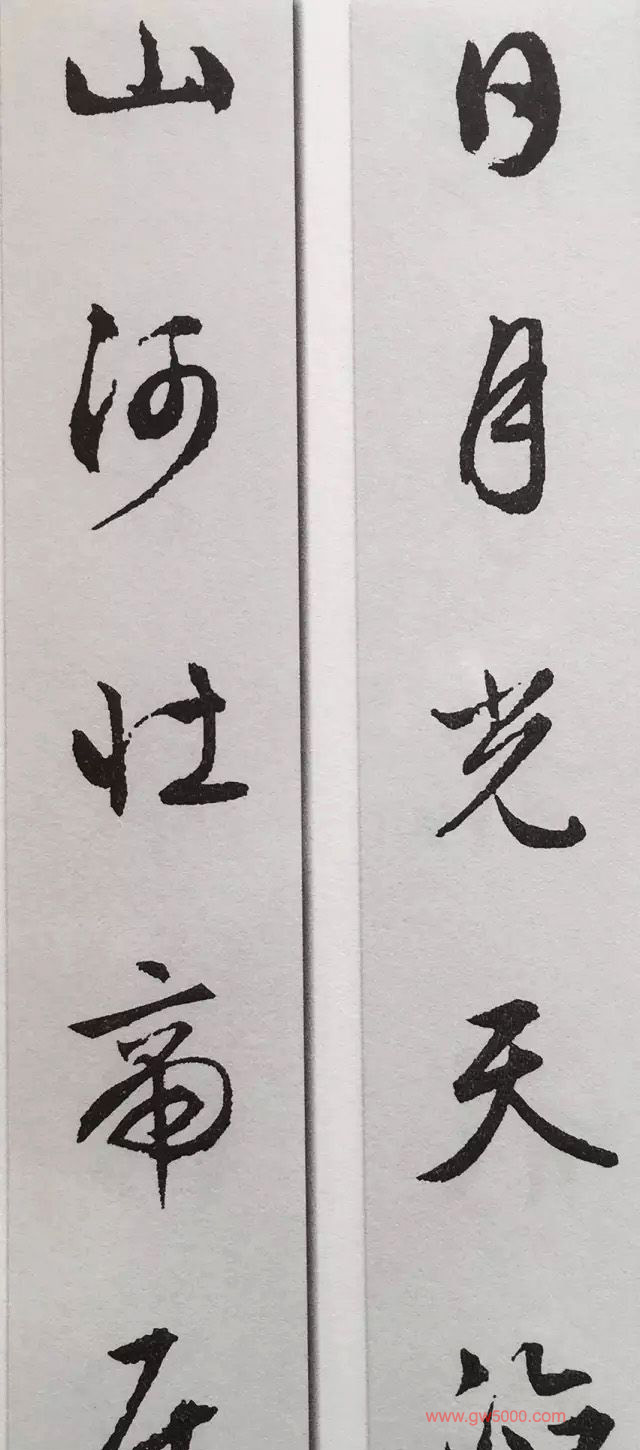 日月光天
山河壮帝居
www.gw5000.com